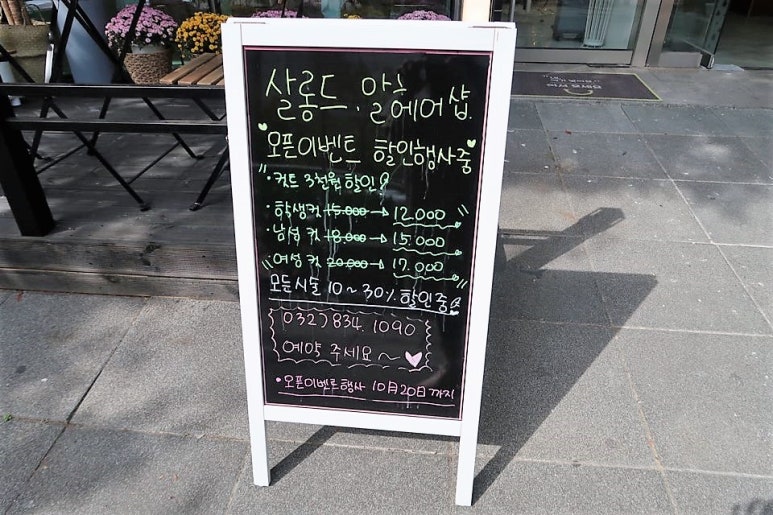 살롱드. 알 헤어 샵.
오픈이벤트 할인행사중
· 커트 3천원 할인
· 학생컷 15.000 → 12.000
· 남성 컷 18.000 → 15.000
· 여성 컷 20.000 → 17.000
모든시술 10~30% 할인중
032) 834. 1090
예약 주세요~
· 오픈이벤트행사 10月20日까지